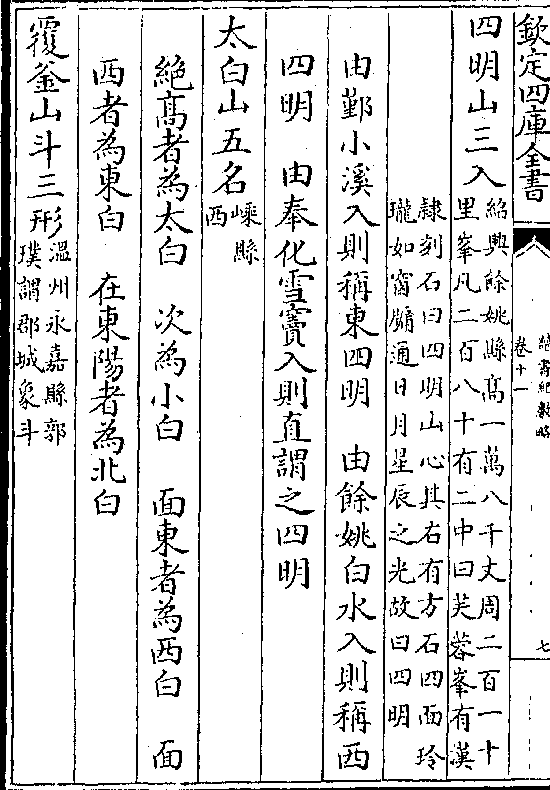 欽定四庫全書
卷十一
七
四明山三入
紹興餘姚縣髙一萬八千丈周二百一十
里峯凡二百八十有二中曰芙蓉峯有漢
隸刻石曰四明山心其右有方石四面玲
瓏如窗牖通日月星辰之光故曰四明
由鄞小溪入則稱東四明　由餘姚白水入則稱西
四明　由奉化雪竇入則直謂之四明
太白山五名
嵊縣
西
絶髙者為太白　次為小白　面東者為西白　面
西者為東白　在東陽者為北白
覆釜山斗三形
溫州永嘉縣郭
璞謂郡城象斗